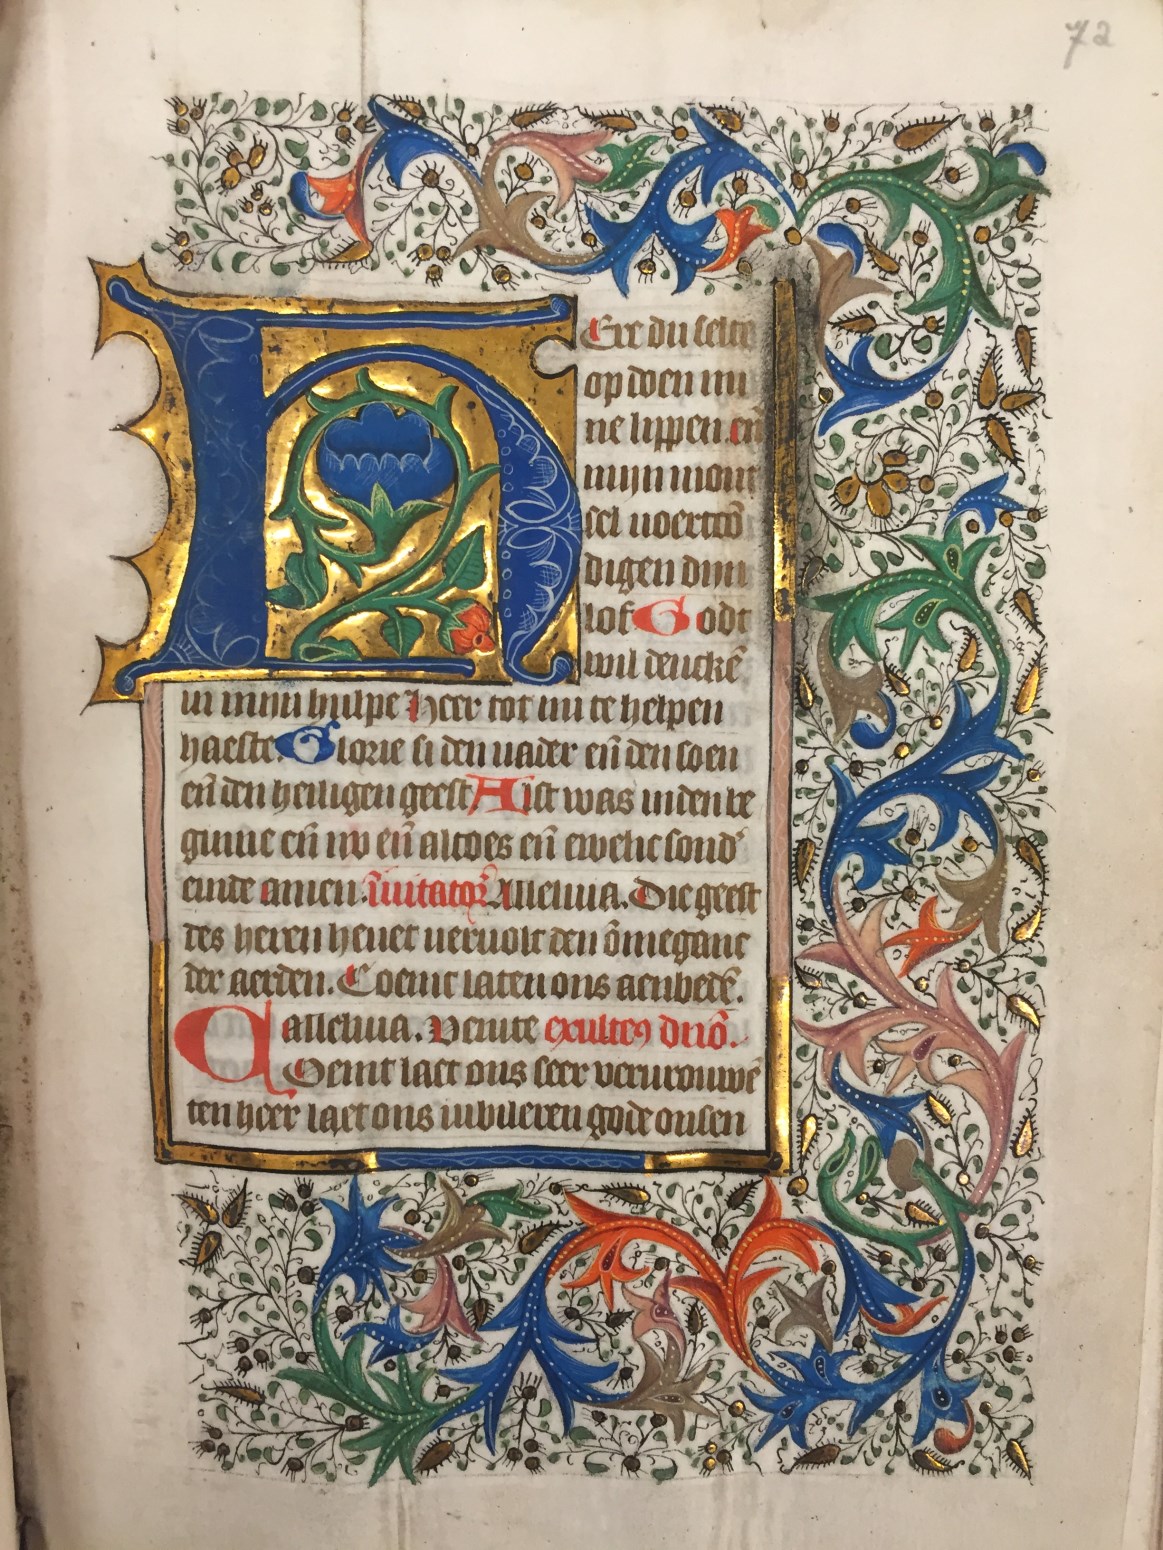 72
H Ere du selte
op doen mi
ne lippen. eñ
mijn mont
sel voertcō
digen dijn
lof Godt
wil denckē
in mijn hulpe Heer tot mi te helpen
haeste. Glorie si den vader eñ den soen
eñ den heiligen geest Alst was inden be
ginne eñ nv eñ altoes eñ ewelic sond'
einde amen. Īuitator Alleluia. Die geest
des heren heuet veruolt den ōmeganc
der aerden. Coemt laten ons aenbedē.
alleluia. Venite exultem9 dño.
Coemt laet ons seer verurouwē
ten heer laet ons iubileren gode onsen